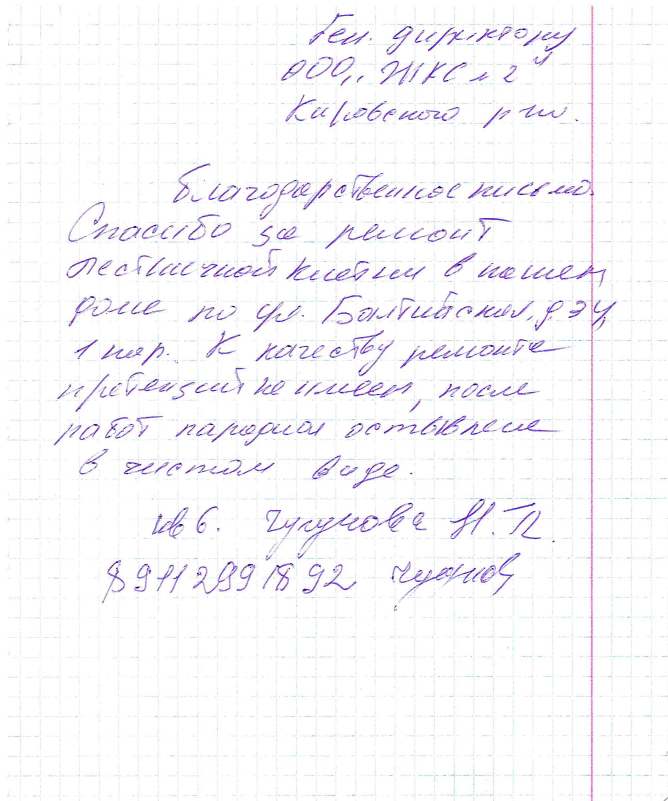 Ген. директору
ООО „ЖКС № 2"
Кировского р-на.
Благодарственное письмо.
Спасибо за ремонт
лестничной клетки в нашем
доме по ул. Балтийская, д.
1 пар. К качеству ремонта
претензий не имеем, после
работ парадная оставлена
в чистом виде.
кв 6. Чугунова Н. П.
89112991892